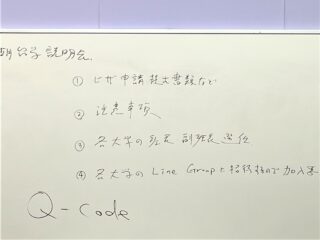 留学説明会.
① ビザ申請提出書類など
② 注意事項
③ 各大学の班長 副班長選任
④ 各大学の Line Group に招待するので加入
Q-code